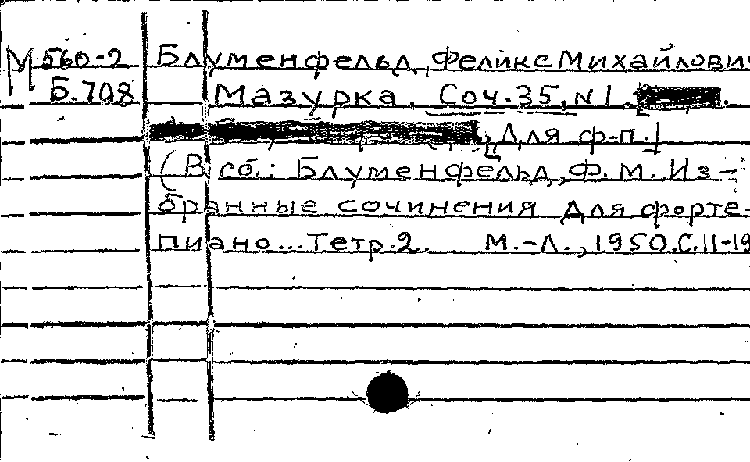 М 560-2 Блуменфельд, Феликс Михайлович
Б.708 Мазурка. Соч.35, N1.
[Для ф-п.]
(В сб.: Блуменфельд, Ф.М. Из-
бранные сочинения для форте-
пиано... Тетр.2. М.-Л., 1950. С.11-19